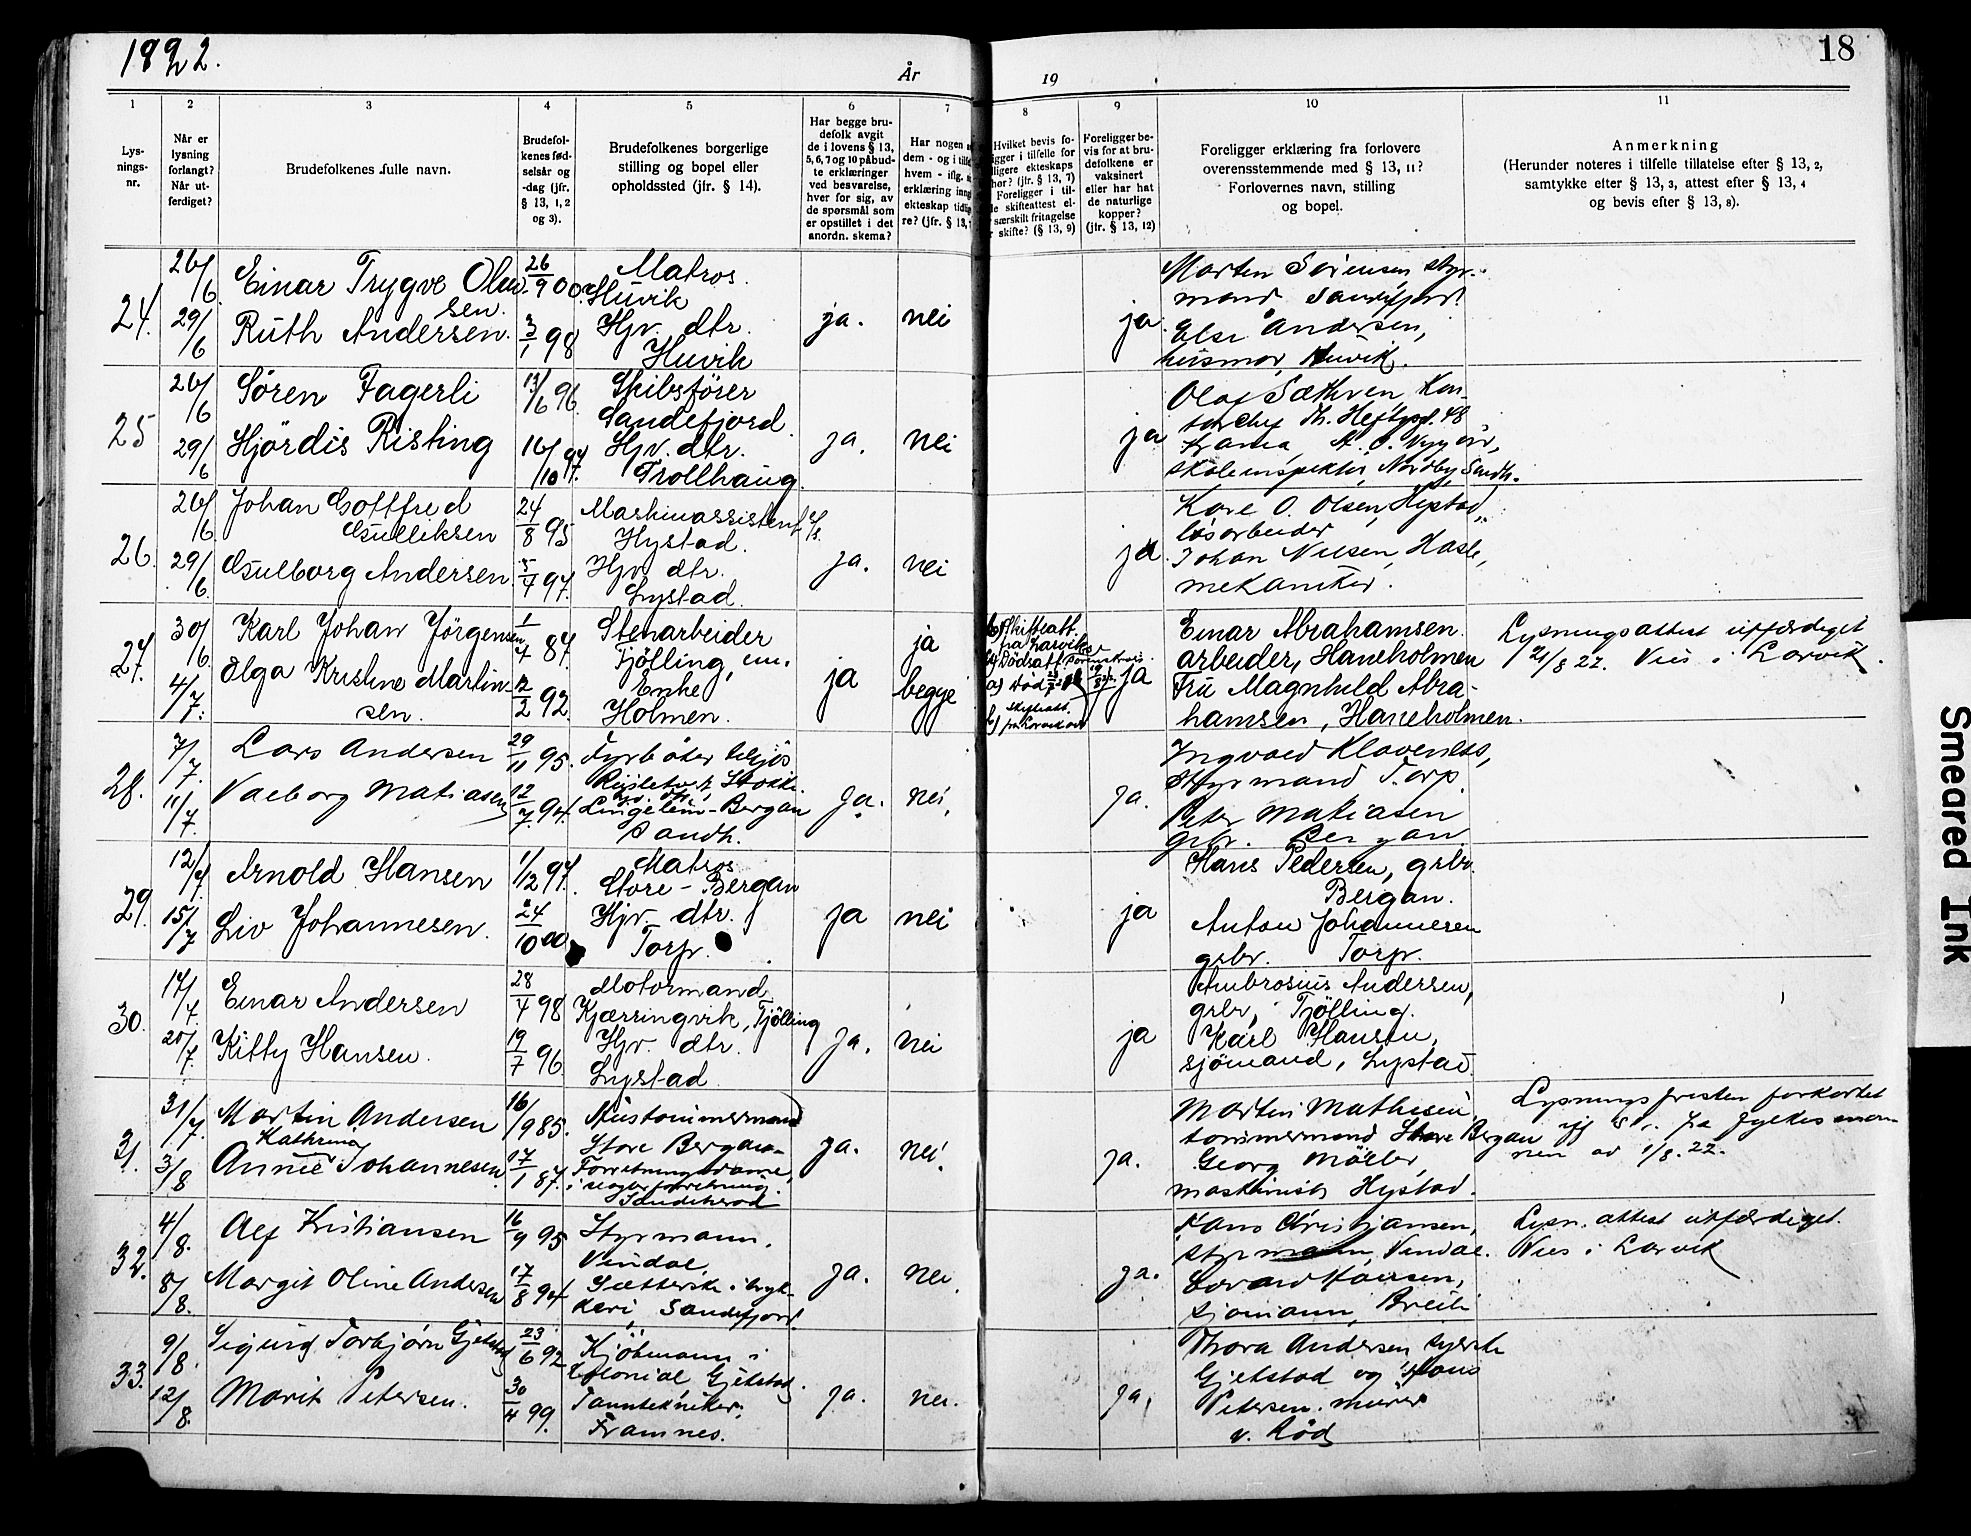 1922.
År
19
18
1
2
3
4
5
6
7
8
9
10
11
Lys-
nings-
nr.
Når er
lysning
forlangt?
Når ut-
ferdiget?
Brudefolkenes fulle navn.
Brudefol-
kenes fød-
selsår og
-dag (jfr.
§ 13, 1, 2
og 3).
Brudefolkenes borgerlige
stilling og bopel eller
opholdssted (jfr. § 14).
Har begge bru-
defolk avgit
de i lovens § 13,
5, 6, 7 og 10 påbud-
te erklæringer
ved besvarelse,
hver for sig, av
de spørsmål som
er opstillet i det
anordn. skema?
Har nogen a
dem - og i tilfe
hvem - iflg. a
erklæring inng
ekteskap tidlig
re? (jfr. § 13,
Hvilket bevis fo-
igger i tilfelle for
ligere ekteskaps
hør? (jfr. § 13, 7)
Foreligger i til-
le skifteattest el-
særskilt fritagelse
skifte? (§ 13, 9)
Foreligger be-
vis for at bru-
defolkene er
vaksinert
eller har hat
de naturlige
kopper?
(jfr. § 13, 12)
Foreligger erklæring fra forlovere
overensstemmende med § 13, 11?
Forlovernes navn, stilling
og bopel.
Anmerkning
(Herunder noteres i tilfelle tillatelse efter § 13, 2,
samtykke efter § 13, 3, attest efter § 13, 4
og bevis efter § 13, 8).
24.
26/6
29/6
Einar Trygve Olav-
sen.
Ruth Andersen.
26/9 00.
3/1 98
Matros.
Huvik
Hjv. dtr.
Huvik
ja.
nei
ja.
Morten Sörensen, styr-
mand Sandefjord
Else Andersen,
husmor, Huvik.
25
26/6
29/6
Sören Fagerli
Hjördis Risting
13/6 96.
16/10 97.
Skibsförer
Sandefjord.
Hjv. dtr.
Trollhaug.
ja.
nei
ja
Olaf Sæthren Kon-
torchef Th. Heftyegt. 48
skoleinspektör, Nordby, Sandh.
26.
26/6
29/6
Johan Gottfred
Gulliksen
Gulborg Andersen
24/8 95
5/4 97.
Maskinassistent
Hystad.
Hjv. dtr.
Lystad.
ja.
nei
ja.
Kare O. Olsen, Hystad,
lösarbeider
Johan Nilsen, Hasle,
mekaniker.
27.
30/6.
4/7.
Karl Johan Jörgensen
Olga Kristine Martin-
sen.
1/4 87.
12/2 92.
Stenarbeider
Tjölling, em.
Enke
Holmen.
ja
ja
begge
b) Skifteatt.
fra Larvik
Dödsatt.
a) död
skifteatt.
b) fra Larvik
ja
Einar Abrahamsen.
arbeider, Haneholmen
Fru Magnhild Abra-
hamsen, Haneholmen.
Lysningsattest utfærdiget
21/8 22. Vies i Larvik.
28.
7/7.
11/7.
Lars Andersen
Valborg Matiasen
29/11 95.
12/7. 94.
Fyrböter tilsjös
Stokke.
hjv. dtr.
Lingelem-Bergan
Sandh.
ja.
nei.
ja.
Ingvald Klaveness,
Styrmand Torp.
Peter Matiasen
grbr. Bergan
29.
12/7.
15/7
Arnold Hansen
Liv Johannesen.
1/12 97.
24/10 00
Matros
Store-Bergan
Hjv. dtr.
Torp.
ja
nei
ja
Hans Pedersen, grbr.
Bergan.
Anton Johannesen
grbr. Torp.
30.
17/7.
20/7
Einar Andersen
Kitty Hansen.
28/4 98
19/7 96.
Motormand
Kjærringvik, Tjölling
Hjv. dtr.
Lystad.
ja.
nei
ja
Ambrosius Andersen,
grbr, Tjölling.
Karl Hansen,
sjömand, Lystad.
31.
31/7.
3/8
Martin Andersen
Kathrine
Annie Johannesen.
16/9 85.
17/1 87.
Hustömmermand
Store Bergan
Forretningsdame,
i slagterforretning.
Sandeherad
ja.
nei.
ja.
Martin Mathisen,
tömmermand Store Bergan
Georg Möller,
maskinist Hystad.
Lysningsfristen forkortet
iflg. skr. fra fylkesman-
nen av 1/8. 22.
32.
4/8.
8/8.
Alf Kristiansen
Margit Oline Andersen
16/9 95
17/8 94.
Styrmann.
Vindal
Sætterske i tryk-
keri, Sandefjord.
ja.
nei.
ja.
Hans Christjansen,
styrmann, Vindal.
Hansen,
sjömann, Breili
Lysn. attest utfærdiget.
Vies i Larvik
33.
9/8.
12/8.
Sigurd Torbjörn Gjetstad
Marit Petersen.
23/6 92
30/4 99.
Kjöbmann i
kolonial Gjetstad.
Tanntekniker,
Framnes.
ja.
nei.
ja,
Thora Andersen syerske
Gjetstad og Hans
Petersen. murer
v. Röd
Smeared Ink